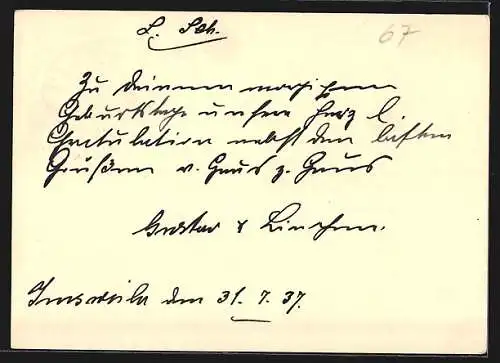 L. Sch.
67
Zu Deinem morgigen
Geburtstage unsere herzl
Gratulation nebst den besten
Grüßen v. Haus z. Haus
Gustav & Linchen.
Imsweiler den 31. 7. 37.